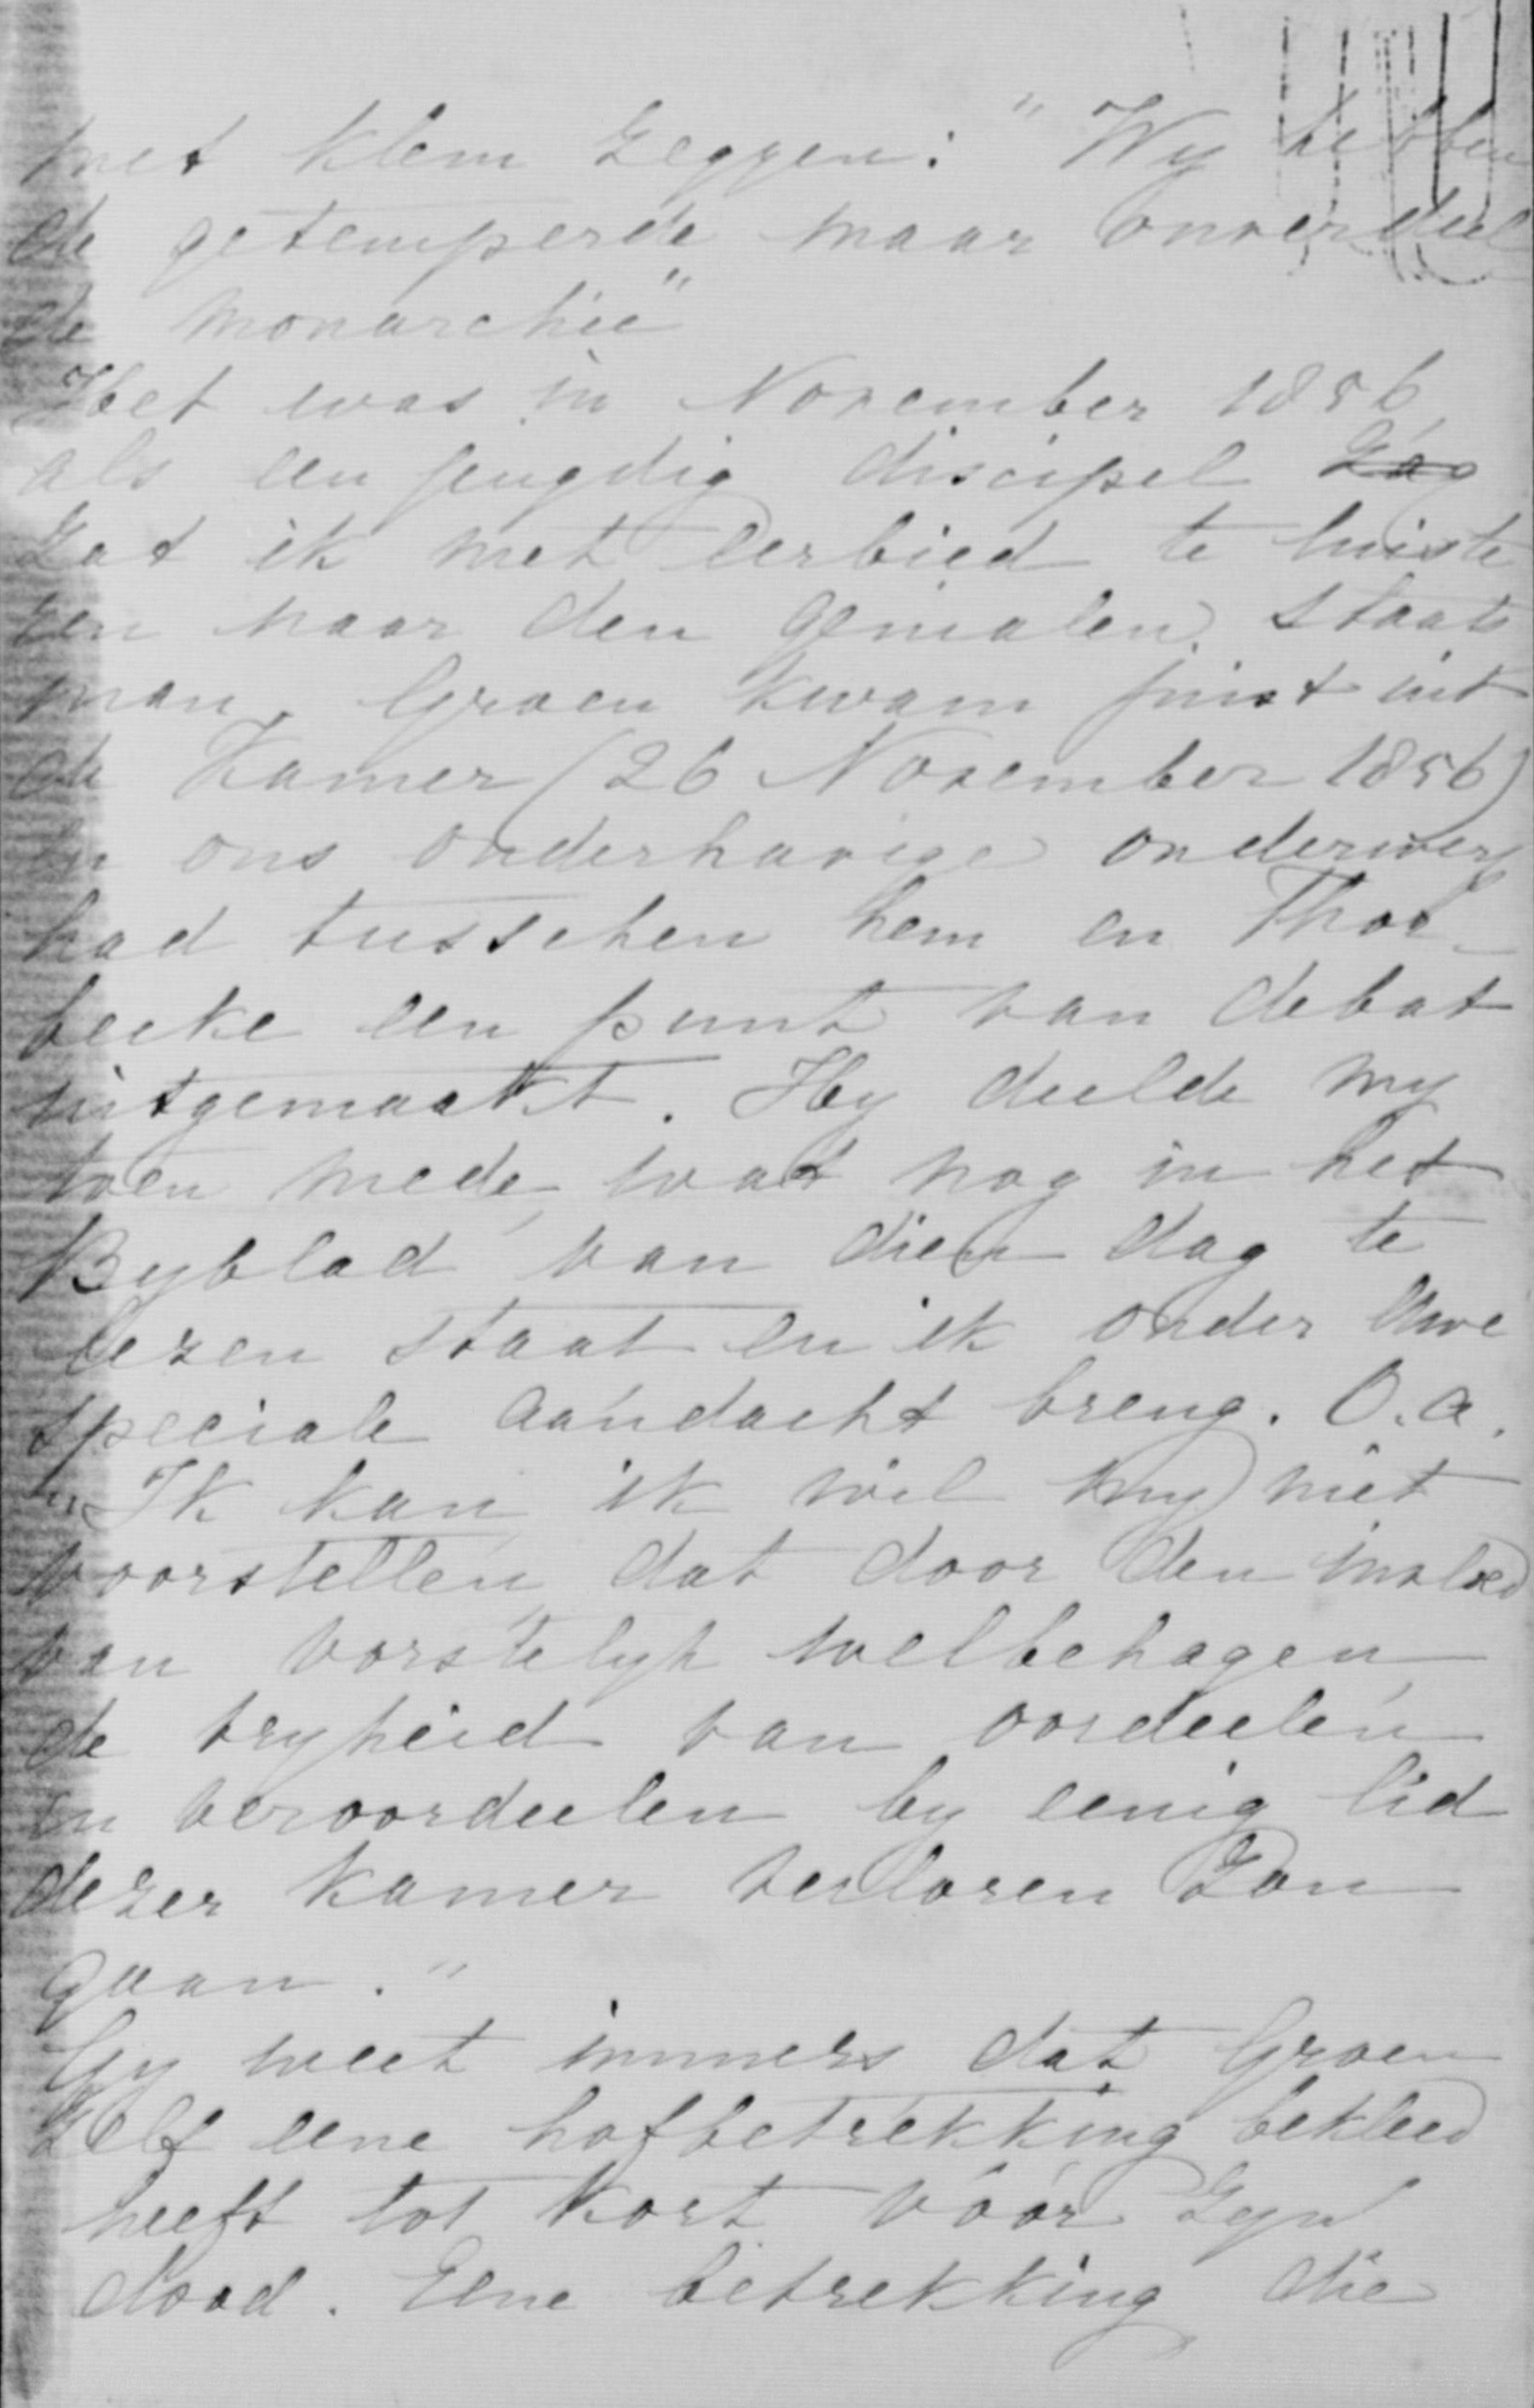 met klem zeggen: "Wy hebben
de getemperde maar onverdeel
de monarchie"
Het was in November 1856,
als een jeugdig discipel zag
zat ik met eerbied te luiste
ren naar den genialen staats
man. Groen kwam juist uit
de Kamer (26 November 1856)
en ons onderhavige onderwerp
had tusschen hem en Thor-
becke een punt van debat
uitgemaakt. Hy deelde my
toen mede, wat nog in het
Byblad van dien dag te
lezen staat en ik onder Uwe
speciale aandacht breng. O.a.
"Ik kan, ik wil my niet
voorstellen, dat door den invloed
van vorstelyk welbehagen,
de vryheid van oordeelen
en veroordeelen by eenig lid
dezer Kamer verloren zou
gaan."
Gy weet immers dat Groen
zelf eene hofbetrekking bekleed
heeft tot kort vóór zyn
dood. Eene betrekking die